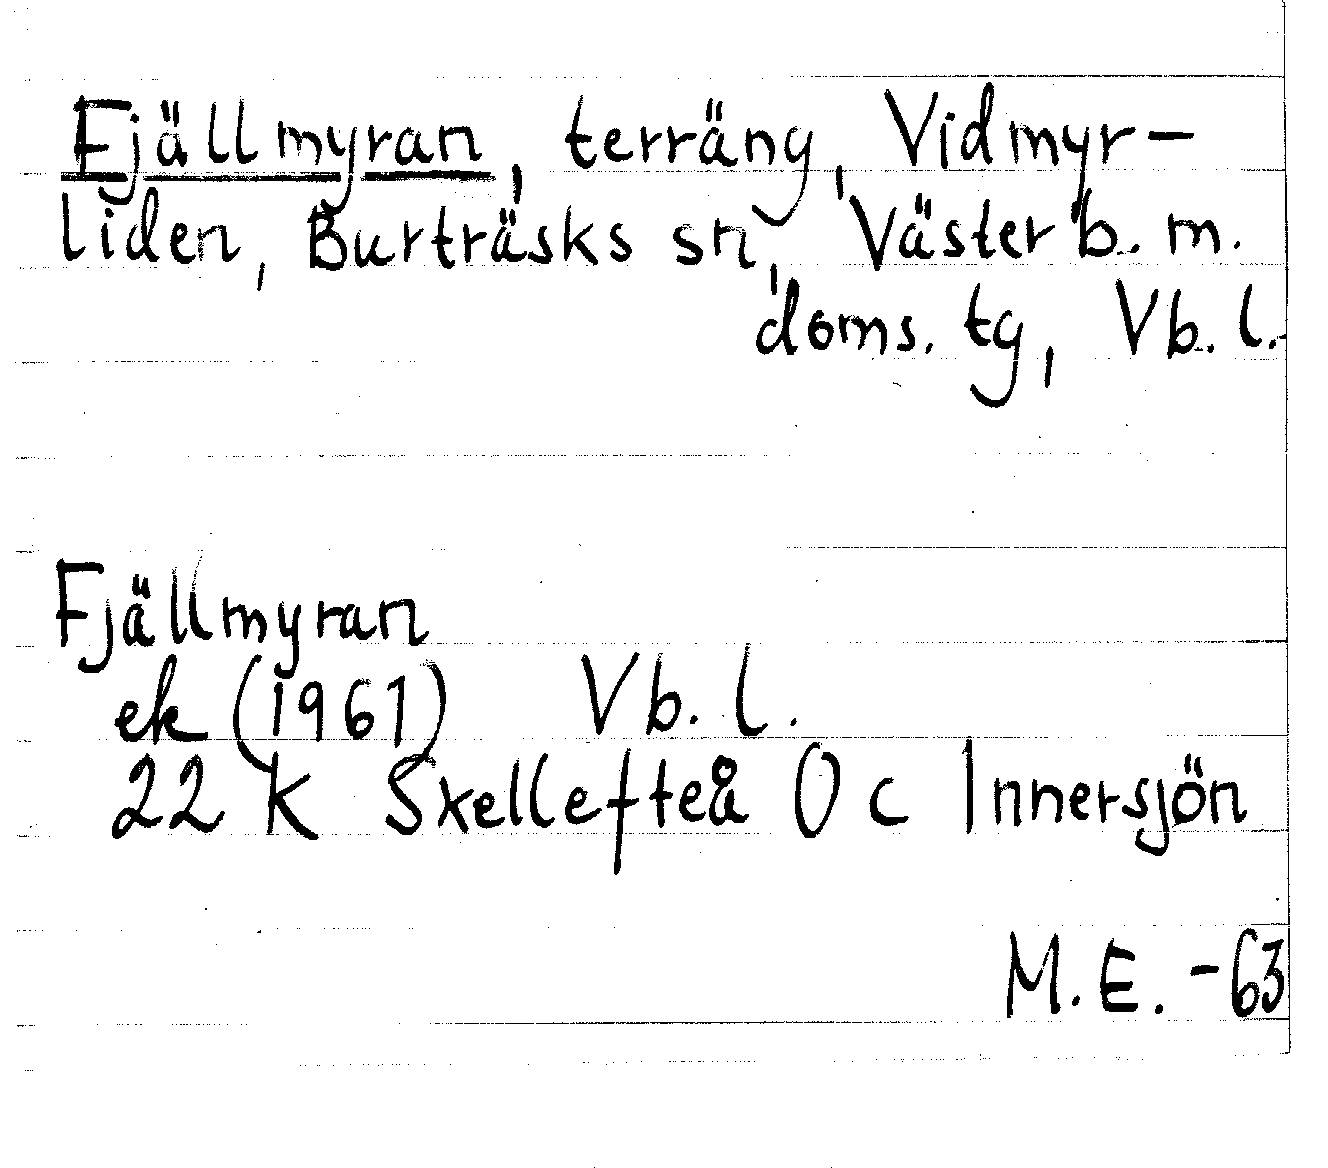 Fjällmyran, terräng, Vidmyr-
liden, Burträsks sn, Västerb. m.
doms. tg, Vb. l.
Fjällmyran
ek (1961) Vb. l.
22 K Skellefteå 0 c Innersjön
M.E. -63